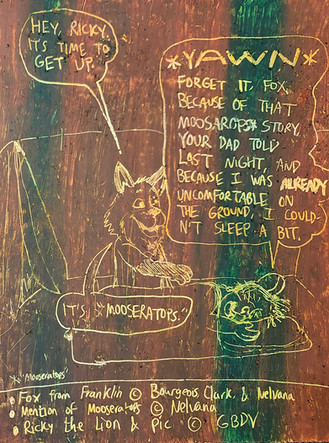 HEY, RICKY.
IT'S TIME TO
GET UP.
*YAWN*
FORGET IT, FOX.
BECAUSE OF THAT
MOOSAROPS* STORY
YOUR DAD TOLD
LAST NIGHT, AND
BECAUSE I WAS ALREADY
UNCOMFORTABLE ON
THE GROUND, I COULD-
N'T SLEEP A BIT.
IT'S "MOOSERATOPS."
* "Mooseratops"
• Fox from Franklin © Bourgeois, Clark, & Nelvana
• Mention of Mooseratops © Nelvana
• Ricky the Lion & Pic © GBDV